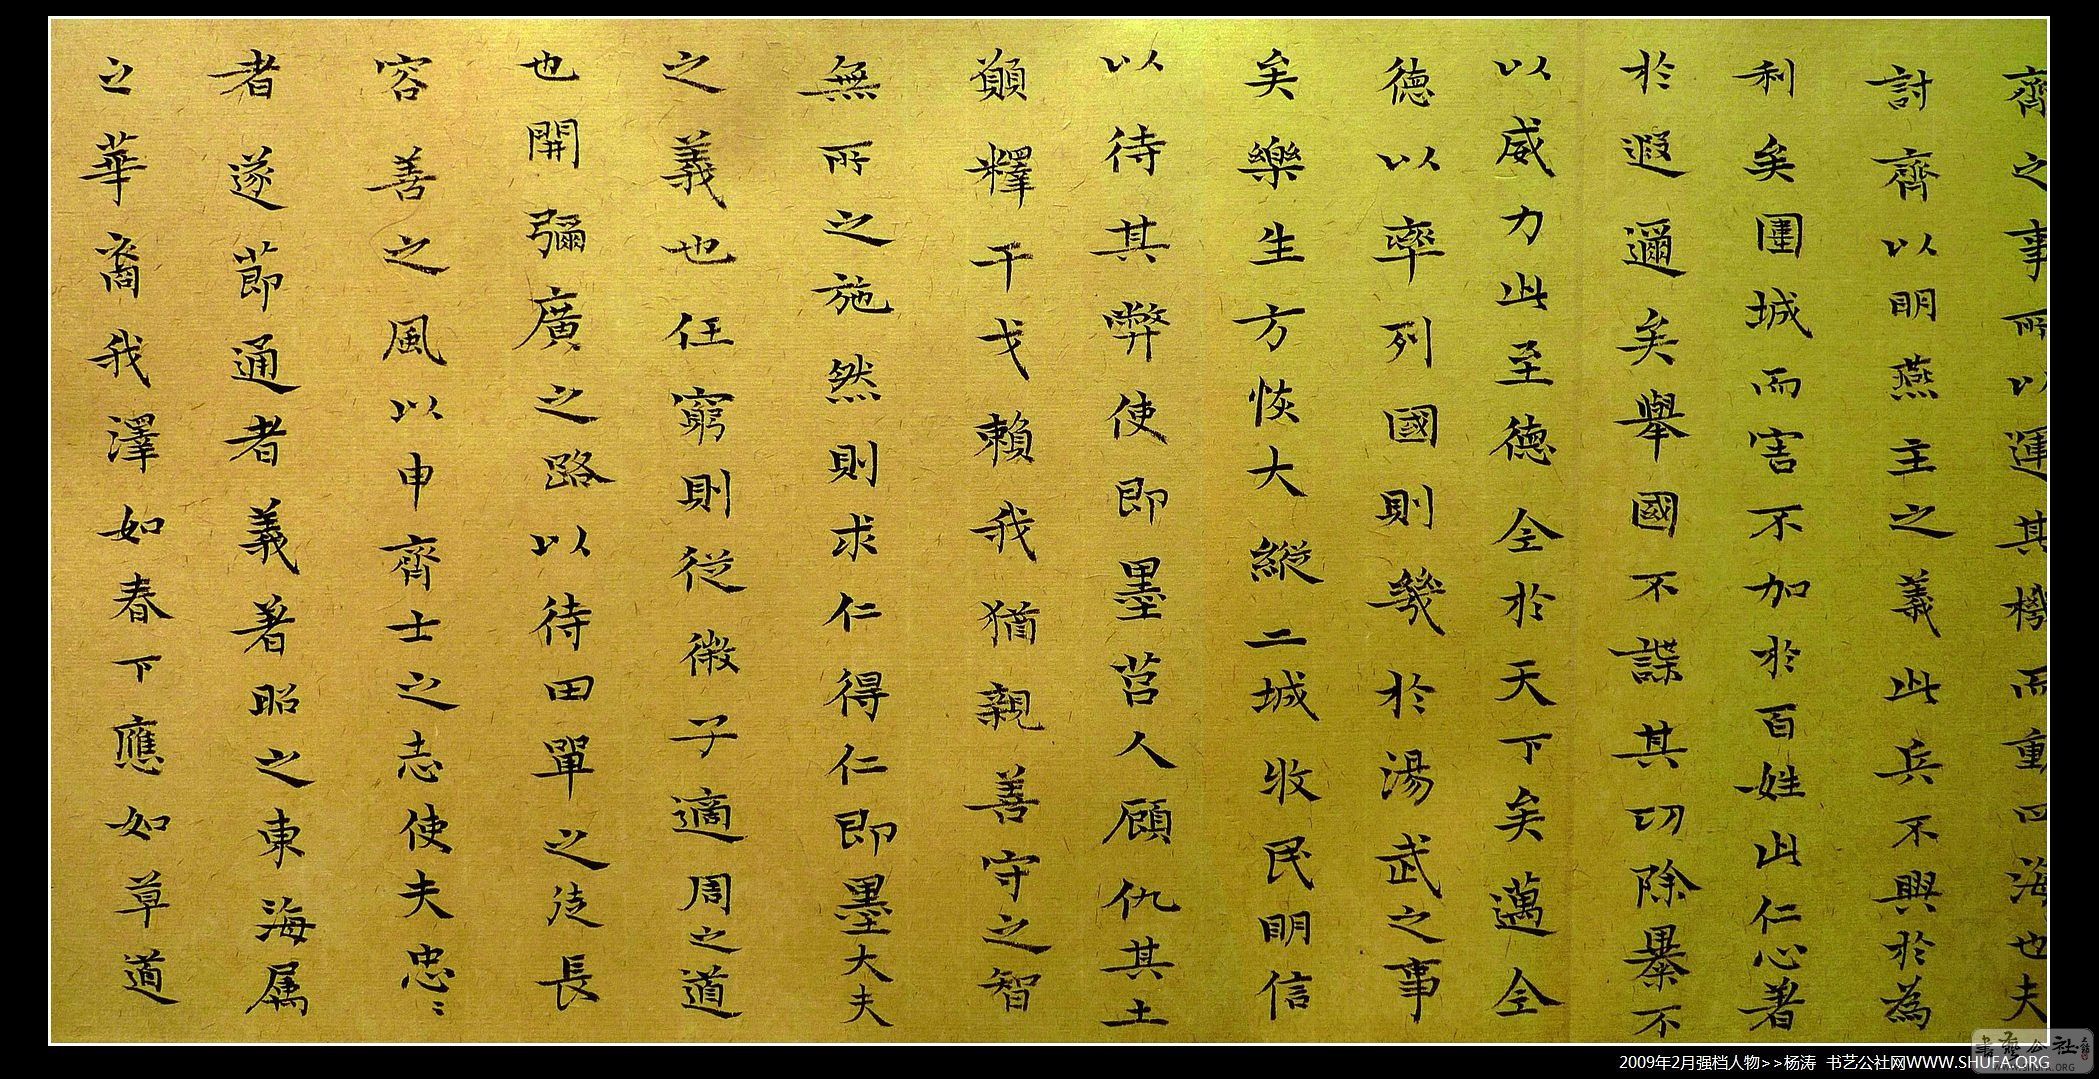 齊之事所以運其機而動四海也夫
討齊以明燕主之義此兵不興於為
利矣圍城而害不加於百姓此仁心著
於遐邇矣舉國不謀其功除暴不
以威力此至德全於天下矣邁全
德以率列國則幾於湯武之事
矣樂生方恢大縱二城收民明信
以待其弊使即墨莒人顧仇其土
願釋干戈賴我猶親善守之智
無所之施然則求仁得仁即墨大夫
之義也任窮則從微子適周之道
也開彌廣之路以待田單之徒長
容善之風以申齊士之志使夫忠〻
者遂節通者義著昭之東海屬
之華裔我澤如春下應如草道
2009年2月强档人物>>杨涛 书艺公社网WWW.SHUFA.ORG
書藝公社
WWW.SHUFA.ORG